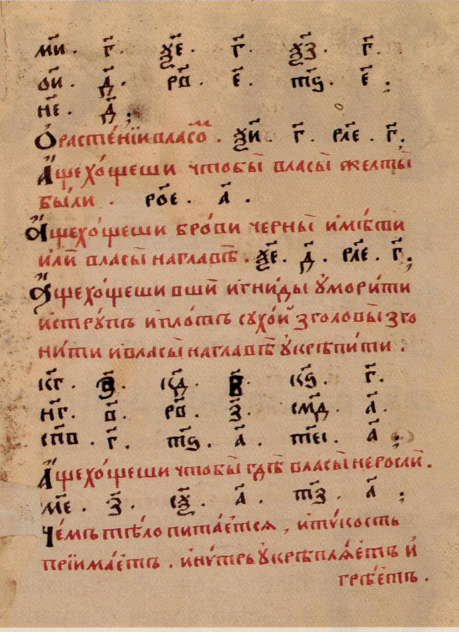 м҃и . г҃ . ѯ҃е . г҃ . ѯ҃з . г҃ .
о҃и . д҃ . р҃в . е҃ . т҃ѕ . е҃ ;
н҃е . д҃ ;
Ѻрасте́нїи власо́м . ѯ҃и . г҃ . рл҃е . г҃ ;
Аще хо́щеши чтобы̀ власы̀ желты̀
были . ро҃е . а҃ .
Аще хо́щеши бро́ви черны̀ имѣ́ти
илѝ власы̀ наглавѣ̀ . ѯ҃е . д҃ . рл҃е . г҃ ;
Аще хо́щеши вшѝ игни́ды ᲂумори́ти
иструпъ иплоть сухо́й зголовы̀ зго
ни́ти ивласы̀ наглавѣ̀ ᲂукрѣпи́ти :
к҃г . в҃ . к҃д . в҃ . к҃ѕ . г҃ .
н҃г . в҃ . р҃в . з҃ . см҃д . а҃ .
сп҃в . г҃ . т҃ѕ . а҃ . те҃і . а҃ ;
Аще хо́щеши чтобы̀ гдѣ̀ власы̀ нерослѝ .
м҃е . з҃ . с҃ѯ . а҃ . т҃з . а҃ ;
Че́мъ тѣ́ло пита́етсѧ , иту́кость
прїима́етъ . ину́трь ᲂукрѣплѧ́етъ ѝ
грѣ́етъ .